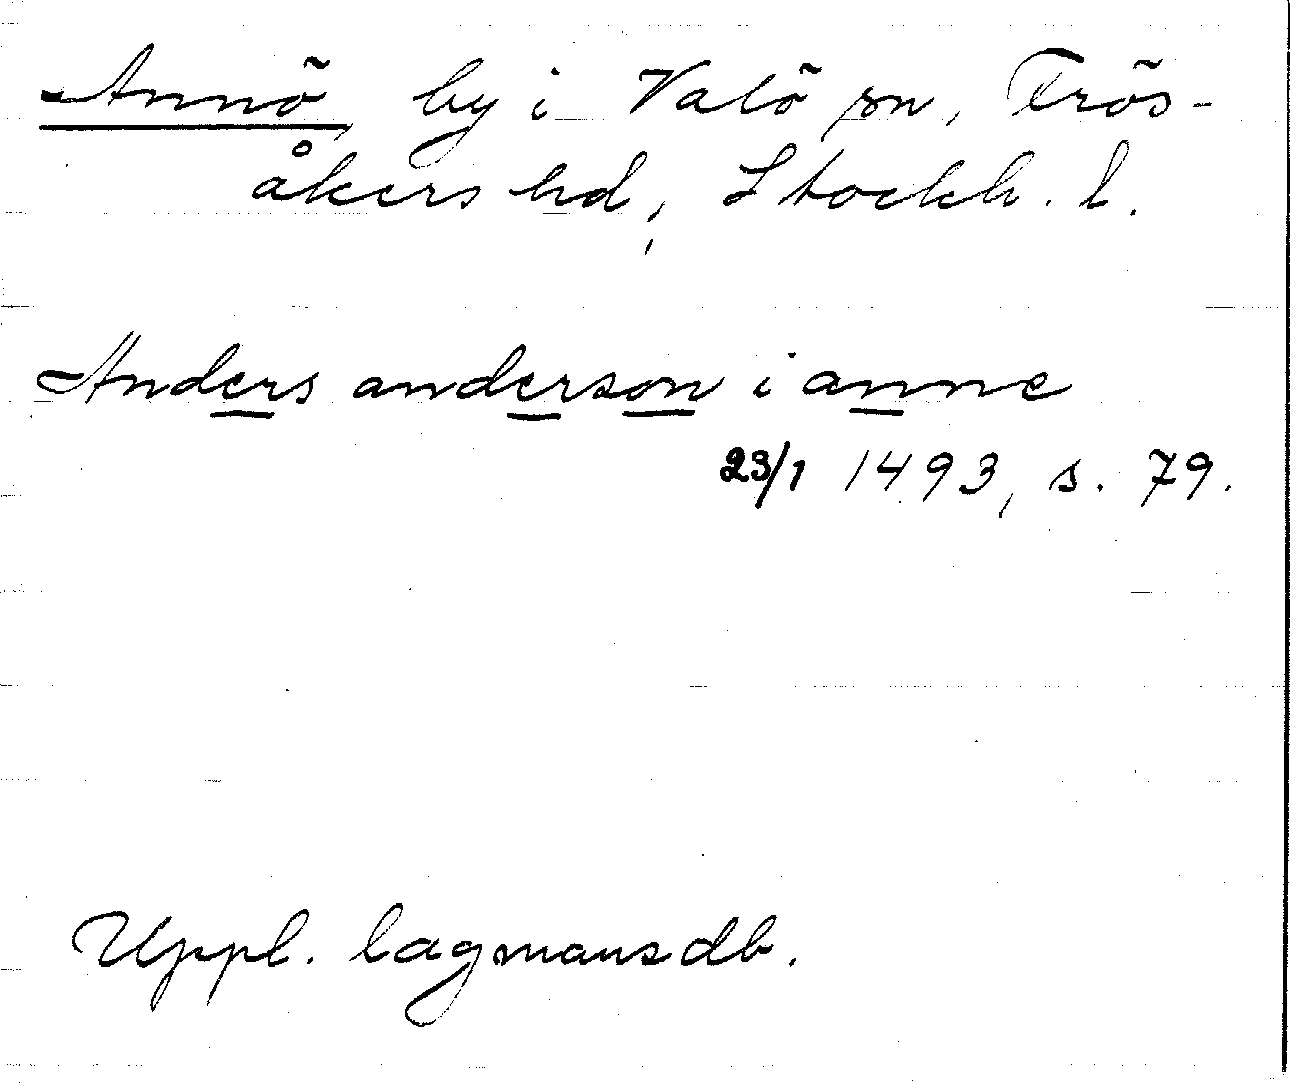 Annö, by i Valö sn, Frös-
åkers hd, Stockh. l.
Anders anderson i anne
23/1 1493, s. 79.
Uppl. lagmansdb.